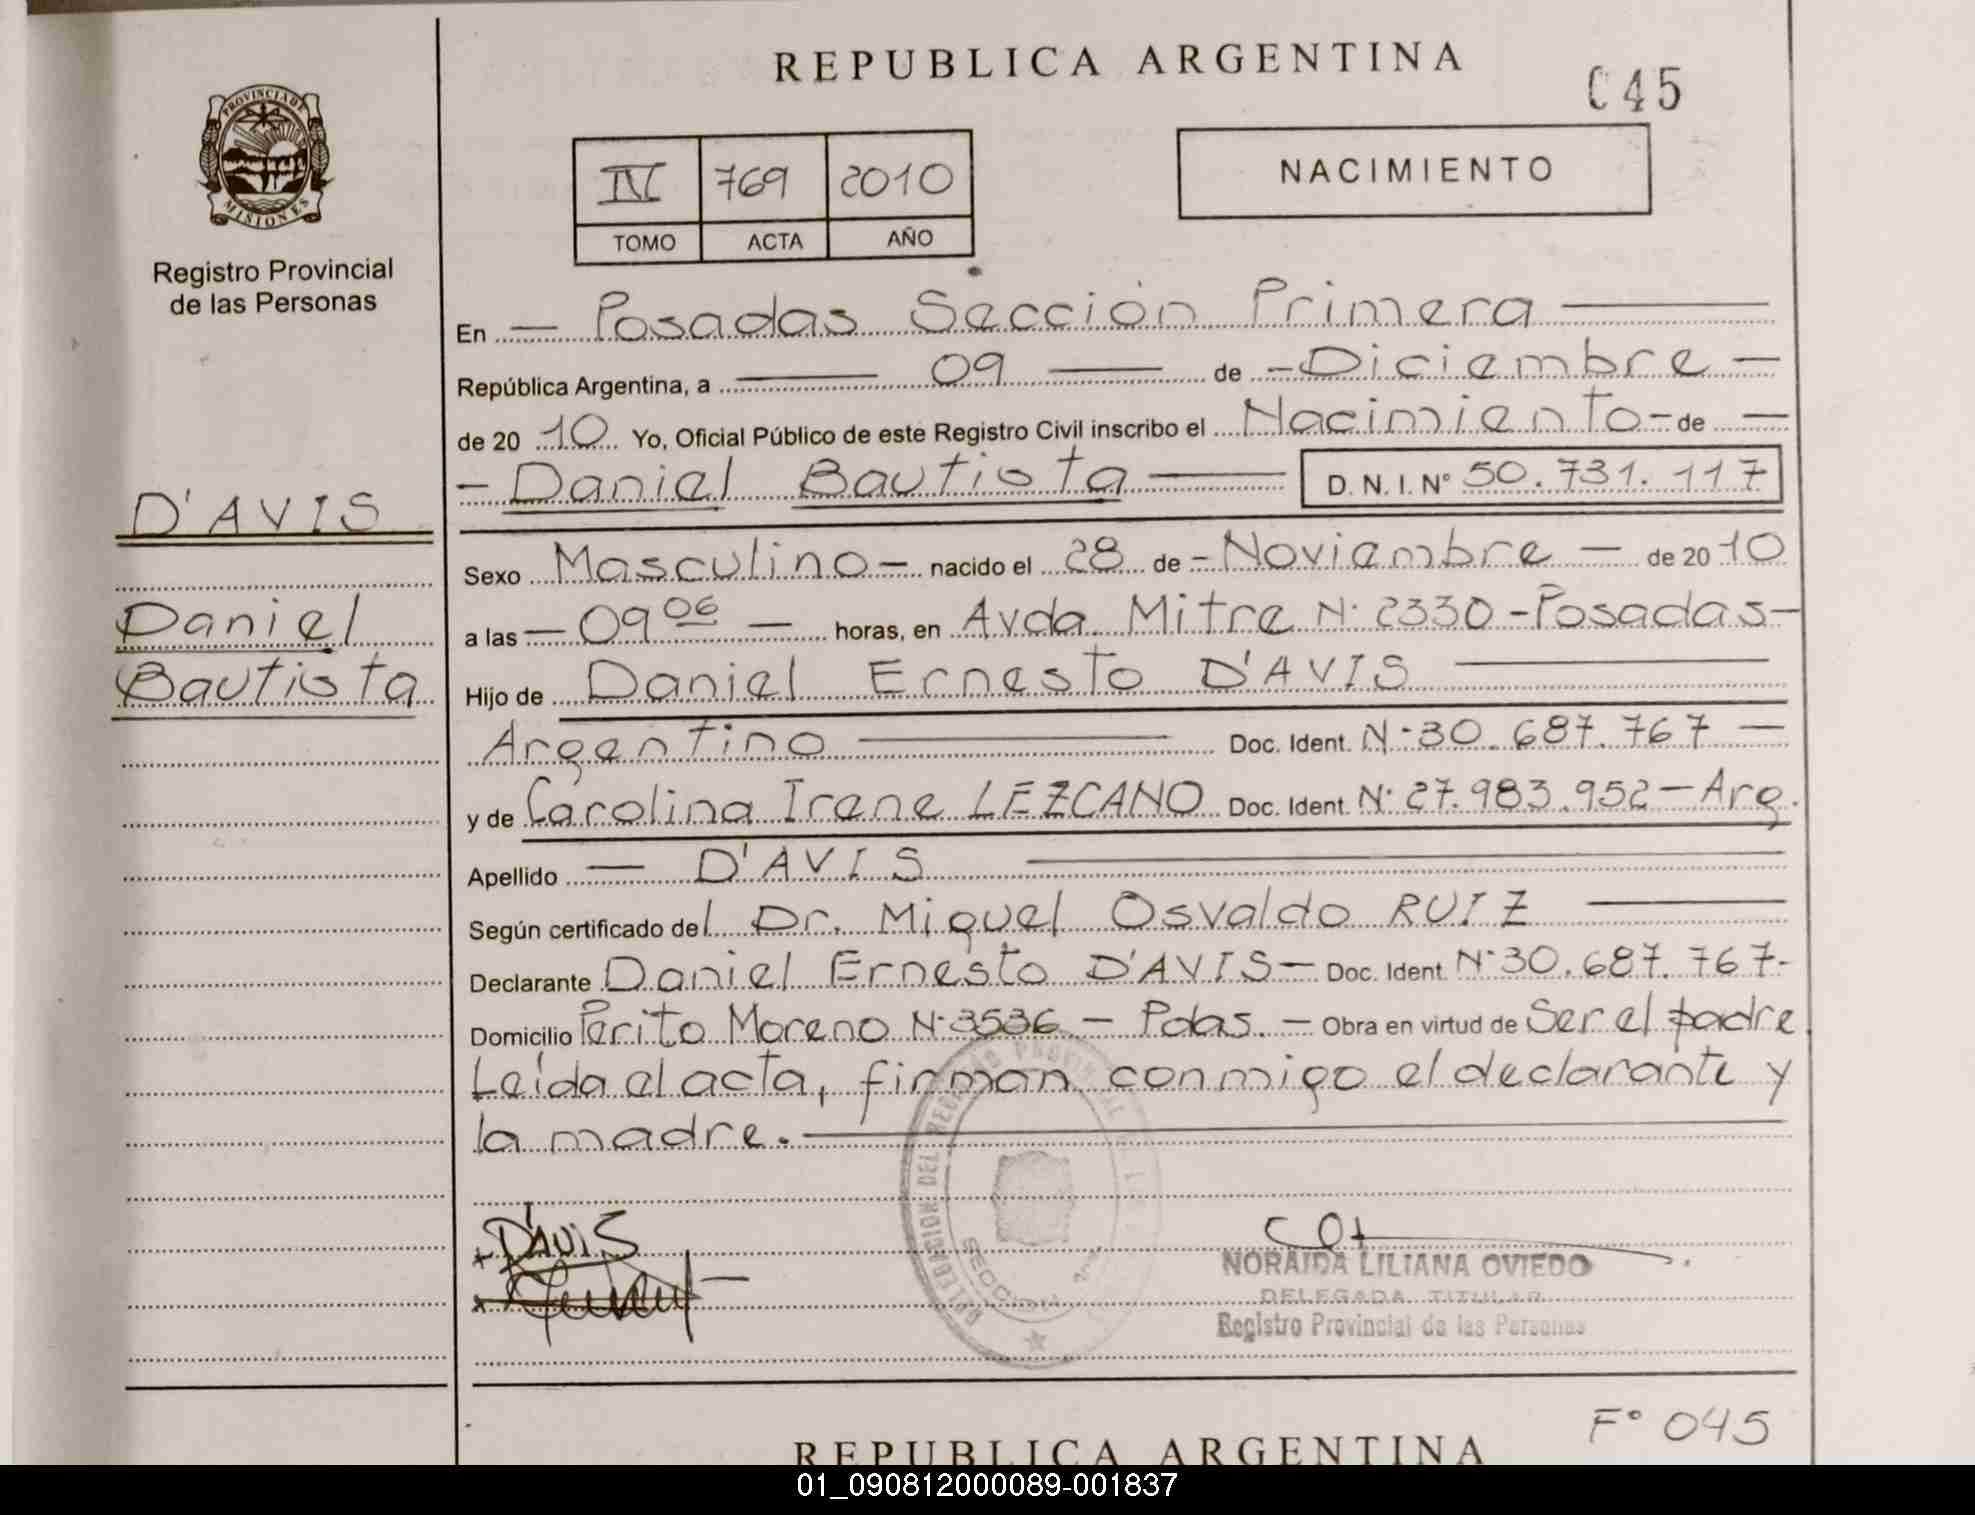 REPUBLICA ARGENTINA
C45
PROVINCIA DE
MISIONES
Registro Provincial
de las Personas
IV 769 2010
TOMO ACTA AÑO
NACIMIENTO
En — Posadas Sección Primera —
República Argentina, a — 09 — de - Diciembre —
de 20 10 Yo, Oficial Público de este Registro Civil inscribo el Nacimiento - de —
- Daniel Bautista — D.N.I. Nº 50.731.117
D'AVIS
Daniel
Bautista
Sexo Masculino - nacido el 28 de - Noviembre - de 20 10
a las - 09 06 - horas, en Avda. Mitre N° 2330 - Posadas -
Hijo de Daniel Ernesto D'AVIS —
Argentino — Doc. Ident. N° 30.687.767 —
y de Carolina Irene LEZCANO Doc. Ident. N° 27.983.952 - Arg.
Apellido — D'AVIS —
Según certificado del Dr. Miguel Osvaldo RUIZ —
Declarante Daniel Ernesto D'AVIS - Doc. Ident. N° 30.687.767-
Domicilio Perito Moreno N° 3536 - Pdas. - Obra en virtud de Ser el padre.
Leída el acta, firman conmigo el declarante y
la madre. —
D'AVIS
NORAIDA LILIANA OVIEDO
DELEGADA TITULAR
Registro Provincial de las Personas
DELEGACION DEL REGISTRO PROVINCIAL DE LAS
SECCION
F° 045
REPUBLICA ARGENTINA
01_090812000089-001837